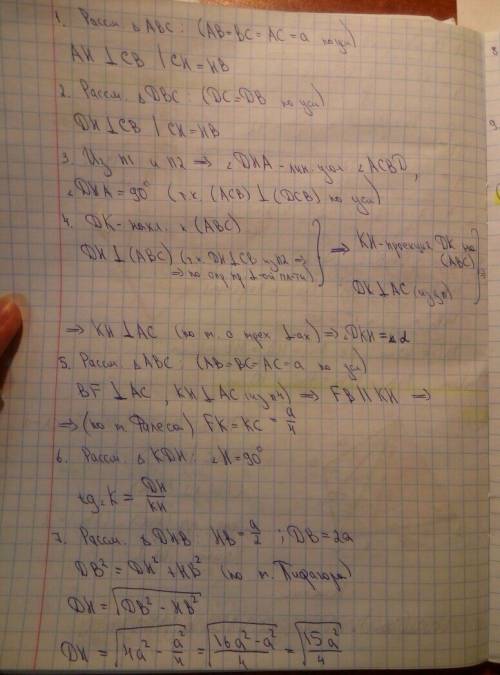 1. Рассм. △ABC: (AB=BC=AC=a по усл)
AH⊥CB | CH=HB
2. Рассм. △DBC: (DC=DB по усл)
DH⊥CB | CH=HB
3. Из п1 и п2 ⇒ ∠DHA - лин. угол ∠ACBD,
∠DHA=90° (т.к. (ACB)⊥(DCB) по усл)
4. DK - накл. к (ABC)
DH⊥(ABC) (т.к DH⊥CB из п2 ⇒
⇒ по опр. пр. ⊥-ой пл-ти)
⇒ KH - проекция DK на
(ABC)
DK⊥AC (из усл)
⇒
⇒ KH⊥AC (по т. о трех ⊥-ах) ⇒ ∠DKH=∠α
5. Рассм. △ABC: (AB=BC=AC=a по усл)
BF⊥AC, KH⊥AC (из п4) ⇒ FB||KH ⇒
⇒ (по т. Фалеса) FK=KC=a/4
6. Рассм. △KDH: ∠H=90°
tg∠K = DH/KH
7. Рассм. △DHB: HB=a/2; DB=2a
DB²=DH²+HB² (по т. Пифагора)
DH=√(DB²-HB²)
DH=√(4a²-a²/4)=√((16a²-a²)/4)=√(15a²/4)
8
9